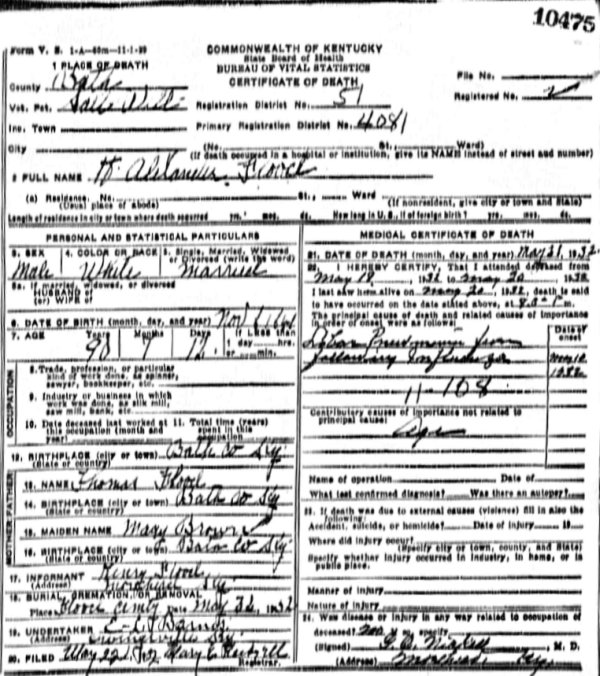 10475
Form V. S. 1-A
COMMONWEALTH OF KENTUCKY
State Board of Health
BUREAU OF VITAL STATISTICS
CERTIFICATE OF DEATH
1 PLACE OF DEATH
County Bath
Vot. Pct.
Inc. Town
City
File No.
Registered No. 2
Registration District No. 51
Primary Registration District No. 4081
(No. St., Ward)
(If death occurred in a hospital or institution, give its NAME instead of street and number)
2 FULL NAME H. Alexander Flood
(a) Residence. No. St., Ward
(Usual place of abode) (If nonresident, give city or town and State)
Length of residence in city or town where death occurred yrs. mos. ds. How long in U. S., if of foreign birth? yrs. mos. ds.
PERSONAL AND STATISTICAL PARTICULARS
3. SEX 4. COLOR OR RACE 5. Single, Married, Widowed
or Divorced (write the word)
Male White Married
5a. If married, widowed, or divorced
HUSBAND of
(or) WIFE of
6. DATE OF BIRTH (month, day, and year) Nov
7. AGE Years Months If LESS than
1 day hrs.
or min.
90
OCCUPATION
8. Trade, profession, or particular
kind of work done, as spinner,
sawyer, bookkeeper, etc.
9. Industry or business in which
work was done, as silk mill,
saw mill, bank, etc.
10. Date deceased last worked at 11. Total time (years)
this occupation (month and spent in this
year) occupation
12. BIRTHPLACE (city or town) Bath Co Ky
(State or country)
MOTHER FATHER
13. NAME Thomas Flood
14. BIRTHPLACE (city or town) Bath Co Ky
(State or country)
15. MAIDEN NAME Mary Brown
16. BIRTHPLACE (city or town) Bath Co Ky
(State or country)
17. INFORMANT Henry Flood
(Address) Morehead Ky
18. BURIAL, CREMATION, OR REMOVAL
Place Flood Date May 22, 1932
19. UNDERTAKER
(Address) Ky
20. FILED May 22 Mary
Registrar.
MEDICAL CERTIFICATE OF DEATH
21. DATE OF DEATH (month, day, and year) May 21, 1932
22. I HEREBY CERTIFY, That I attended deceased from
May 1932 to May 20, 1932
I last saw him alive on May 20, 1932, death is said
to have occurred on the date stated above, at m.
The principal cause of death and related causes of importance
in order of onset were as follows:
Date of
onset
Lobar Pneumonia from
following Influenza May 10
1932
11-108
Contributory causes of importance not related to
principal cause:
Age
Name of operation Date of
What test confirmed diagnosis? Was there an autopsy?
23. If death was due to external causes (violence) fill in also the
following:
Accident, suicide, or homicide? Date of injury 19
Where did injury occur?
(Specify city or town, county, and State)
Specify whether injury occurred in industry, in home, or in
public place.
Manner of injury
Nature of injury
24. Was disease or injury in any way related to occupation of
deceased? If so, specify
(Signed) M. D.
(Address) Morehead Ky